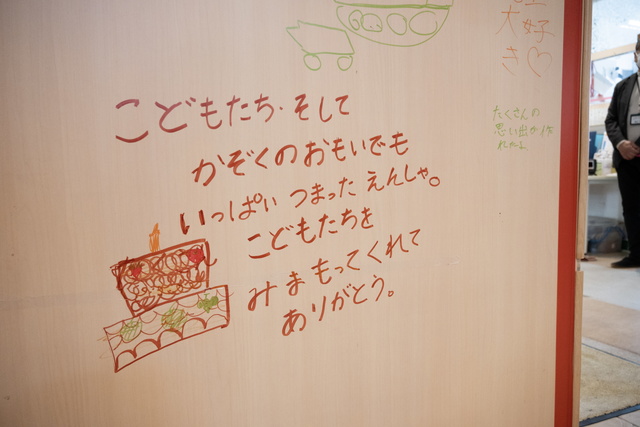 大好
き♡
たくさんの
思い出が作
れたよ
こどもたち・そして
かぞくのおもいでも
いっぱい つまった えんしゃ。
こどもたちを
みまもってくれて
ありがとう。